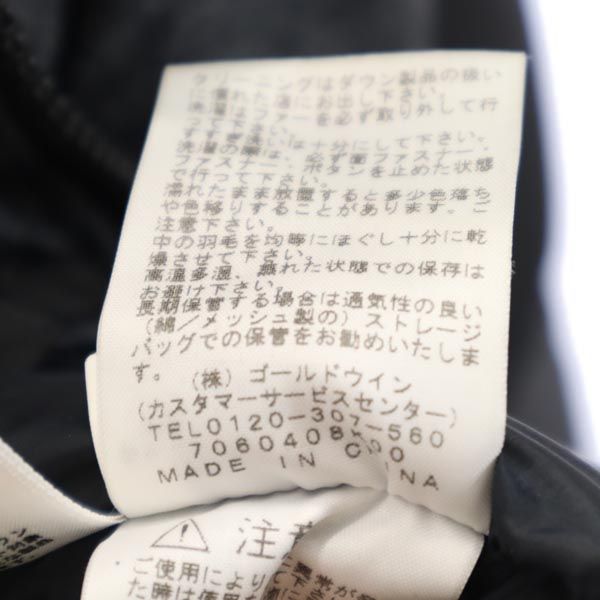 クリーニングはダウン製品の扱い
に慣れた店にお出し下さい。
洗濯はファーを必ず取り外して行
って下さい。
すすぎ洗いは十分にして下さい。
洗濯の際は、必ず面ファスナー、
ファスナー、ボタンを止めた状態
で行って下さい。
濡れたまま放置すると多少色落ち
や色移りすることがあります。ご
注意下さい。
中の羽毛を均等にほぐし十分に乾
燥させて下さい。
高温多湿、蒸れた状態での保存は
お避け下さい。
長期保管する場合は通気性の良い
(綿/メッシュ製の)ストレージ
バッグでの保管をお勧めいたしま
す。
(株)ゴールドウイン
(カスタマーサービスセンター)
TEL0120-307-560
MADE IN CHINA
注意
ご使用によりて
た時は使用を